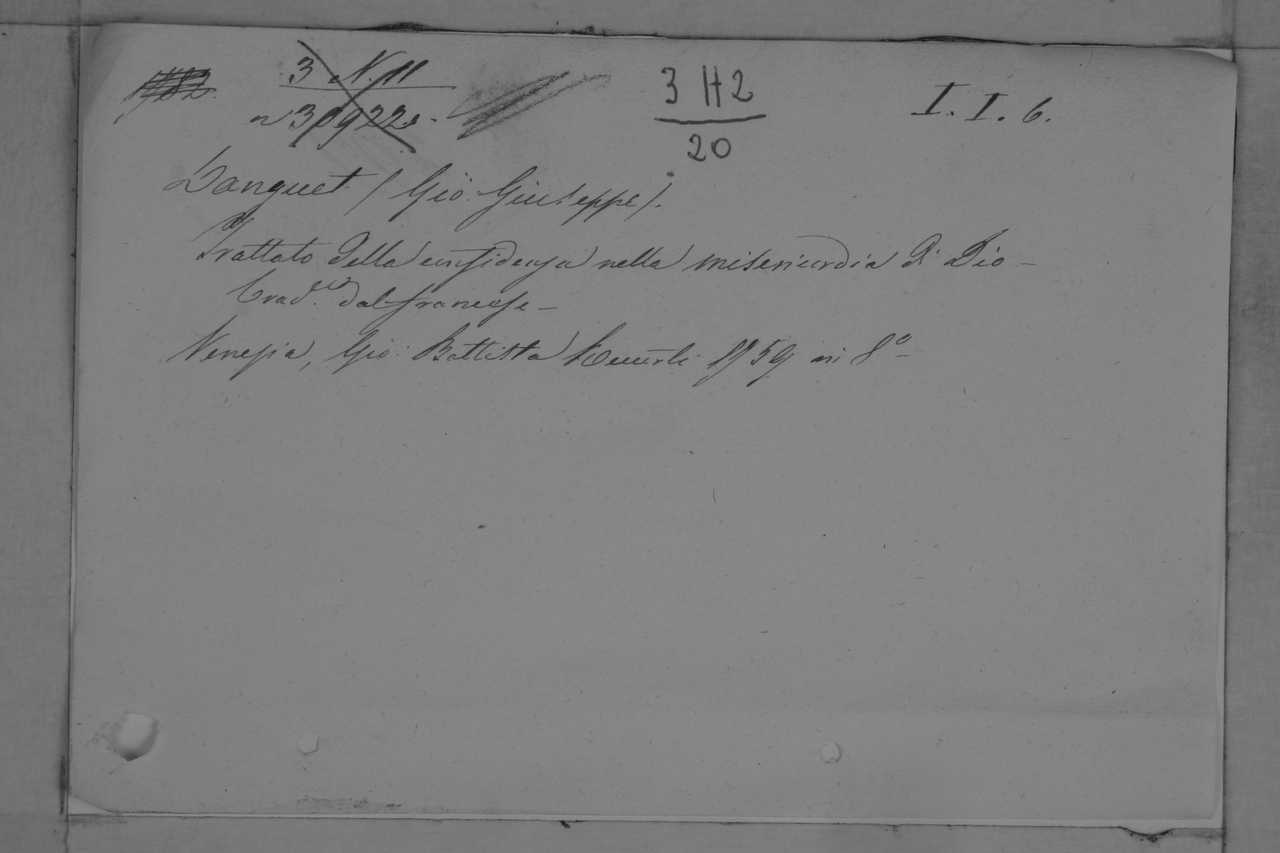 3 N. 11
3 H 2
I. I. 6.
20
Languet (Gio. Giuseppe).
Trattato della confidenza nella misericordia di Dio -
Trad.o dal francese -
Venezia, Gio: Battista 1759 in 8o -